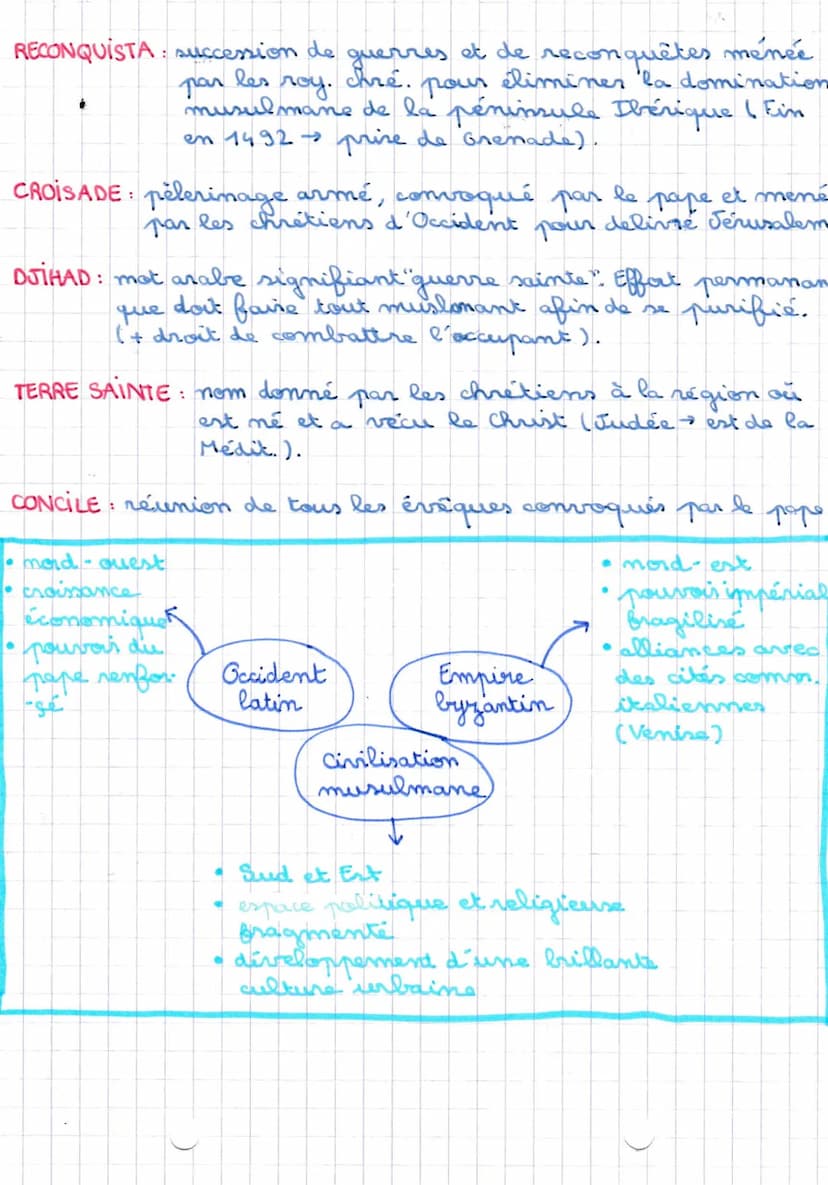 RECONQUISTA : succession de guerres et de reconquêtes ménée
par les roy. chré. pour éliminer la domination
musulmane de la péninsule Ibérique (Fin
en 1492 → prise de Grenade).
CROISADE : pèlerinage armé, convoqué par le pape et mené
par les chrétiens d'Occident pour delivré Jérusalem
DJIHAD : mot arabe signifiant "guerre sainte". Effort permanan
que doit faire tout muslomant afin de se purifié.
(+ droit de combattre l'occupant).
TERRE SAINTE : nom donné par les chrétiens à la région où
est né et a vécu le Christ (Judée → est de la
Médit.).
CONCILE : réunion de tous les évêques convoqués par le pape
• nord-ouest
• croissance
économique
• pouvoir du
pape renfor-
-sé
Occident
latin
Empire
byzantin
• nord-est
• pouvoir impérial
fragilisé
• alliances avec
des cités comm.
italiennes
(Venise)
Civilisation
musulmane
• Sud et Est
• espace politique et religieuse
fragmenté
• développement d'une brillante
culture urbaine